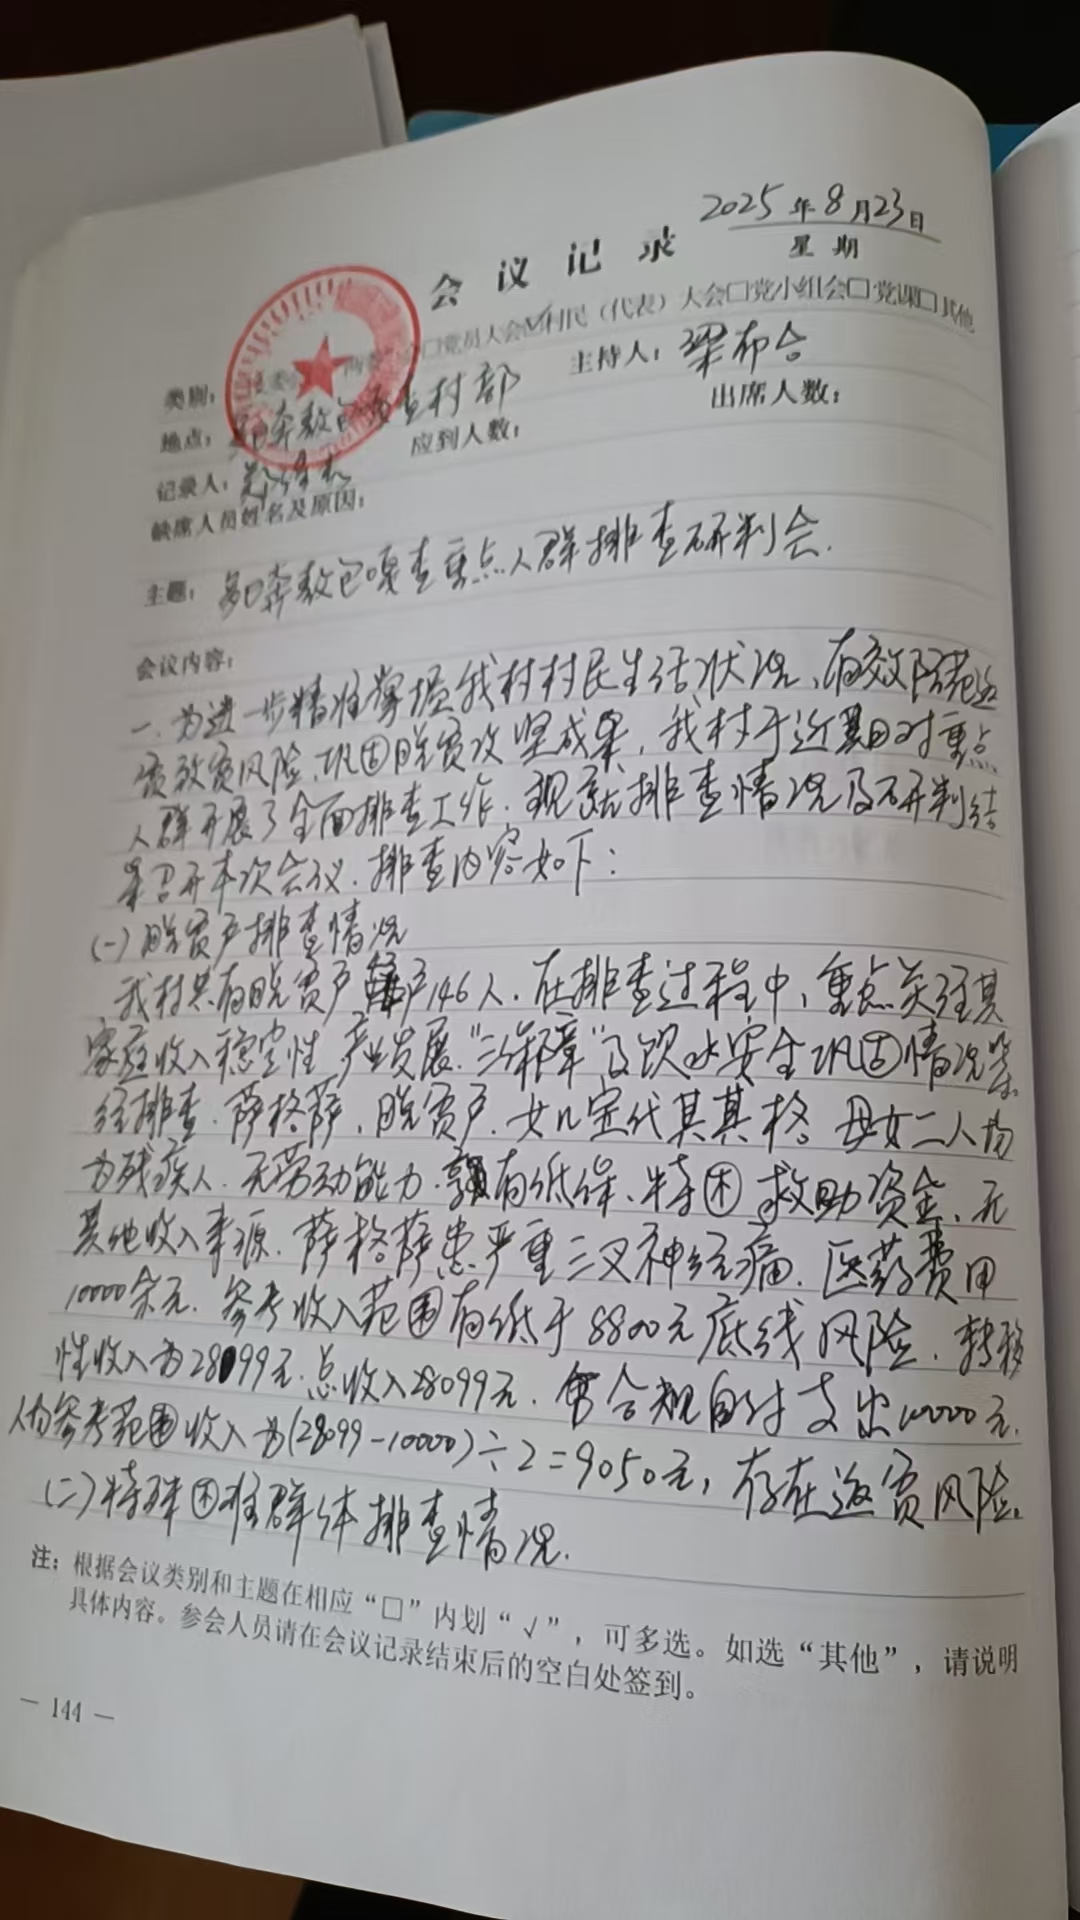 2025年8月23日
会议记录
星期
类别：
□党员大会☑村民（代表）大会□党小组会□党课□其他
地点：
村部
主持人：梁布合
记录人：
应到人数：
出席人数：
缺席人员姓名及原因：
主题：
奔敖包嘎查重点人群排查研判会.
会议内容：
一.为进一步精准掌握我村村民生活状况、有效防范返
贫致贫风险、巩固脱贫攻坚成果，我村于近期对重点
人群开展了全面排查工作.现就排查情况及研判结
果召开本次会议.排查内容如下：
(一)脱贫户排查情况
我村共有脱贫户 户146人.在排查过程中，重点关注其
家庭收入稳定性、产业发展、“三保障”及饮水安全巩固情况等.
经排查.萨格萨，脱贫户.女儿宝代其其格.母女二人均
为残疾人.无劳动能力.有低保、特困救助资金、无
其他收入来源.萨格萨患严重三叉神经痛.医药费用
10000余元.参考收入范围有低于8800元底线风险.转移
性收入为28099元.总收入28099元.合规自付支出10000元.
人均参考范围收入为(28099-10000)÷2=9050元，存在返贫风险。
(二)特殊困难群体排查情况.
注：根据会议类别和主题在相应“□”内划“√”，可多选。如选“其他”，请说明
具体内容。参会人员请在会议记录结束后的空白处签到。
— 144 —